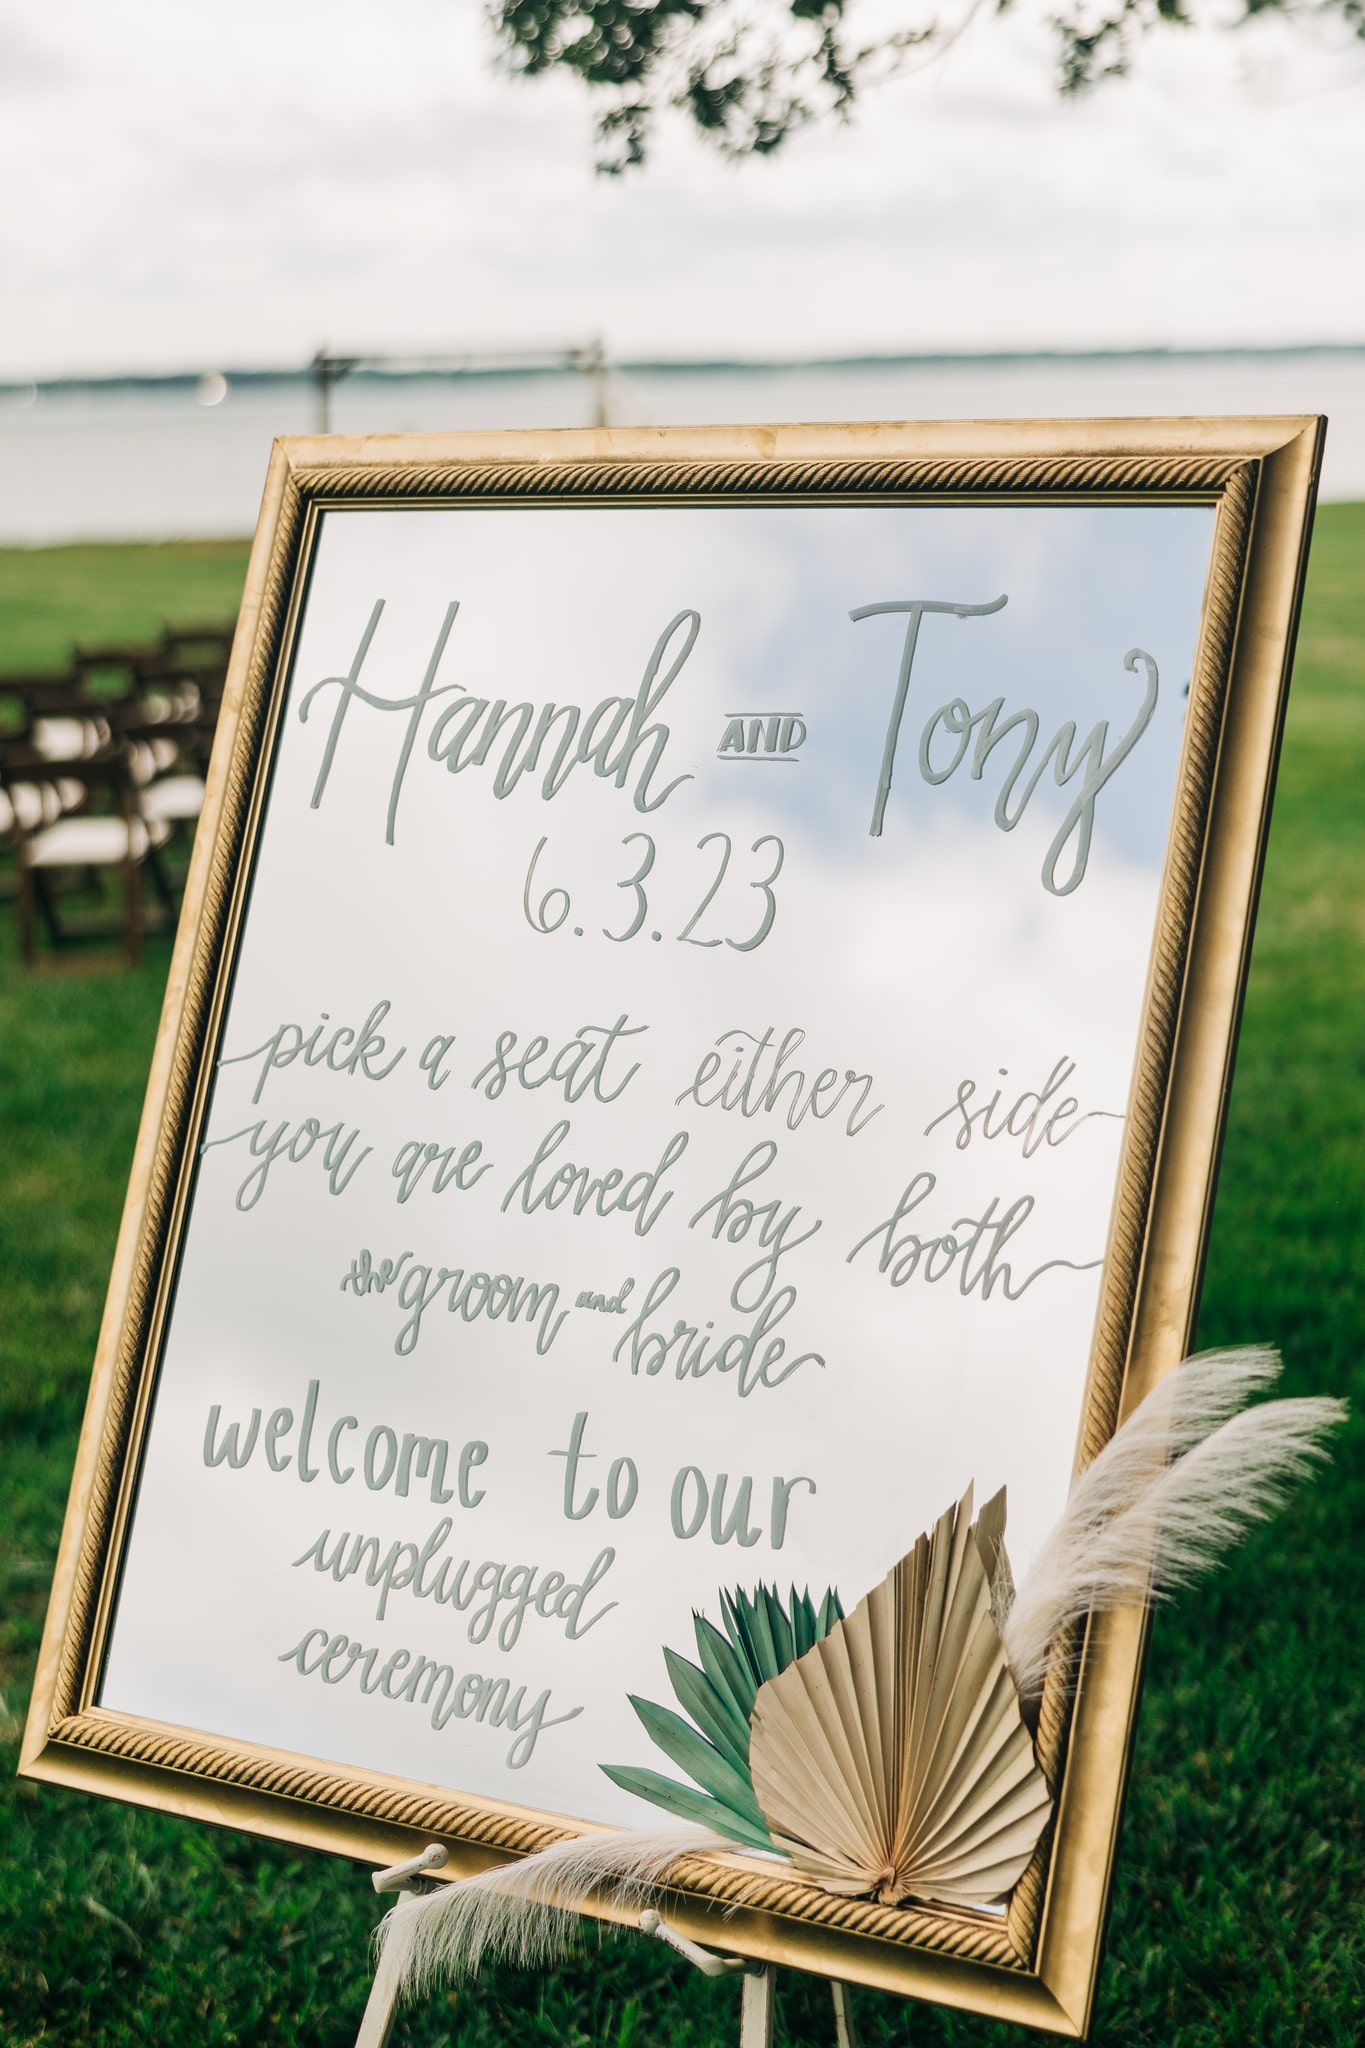 Hannah AND Tony
6.3.23
pick a seat either side
you are loved by both
the groom and bride
welcome to our
unplugged
ceremony